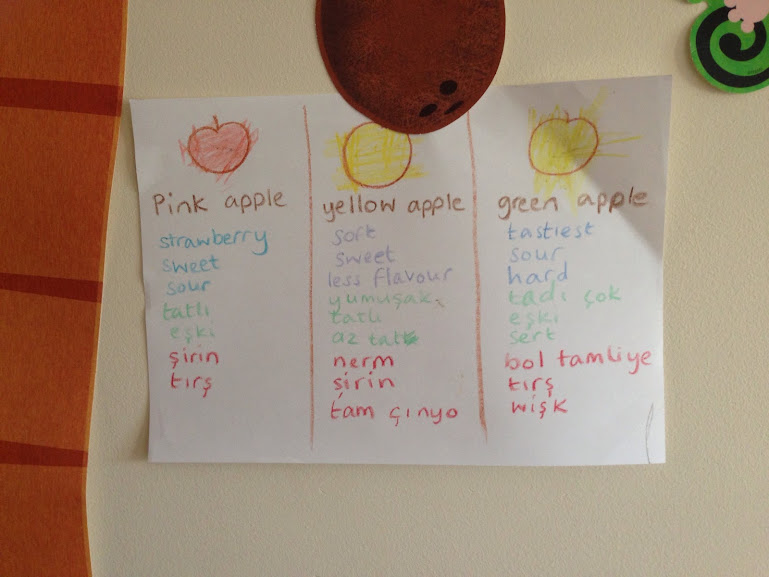 Pink apple
strawberry
sweet
sour
tatlı
eşki
şirin
tırş
yellow apple
soft
sweet
less flavour
yumuşak
tatlı
az
nerm
şirin
tam çınyo
green apple
tastiest
sour
hard
tadı çok
eşki
sert
bol tamliye
tırş
wişk